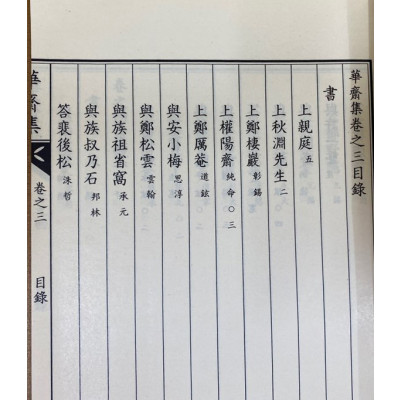 華齋集卷之三目錄
書
上親庭 五
上秋淵先生 二
上鄭棲巖 彰錫
上權陽齋 純命 ○ 三
上鄭厲菴 道鉉
與安小梅 思淳
與鄭松雲 雲翰
與族祖省窩 承元
與族叔乃石 邦林
答裵後松 洙哲
華齋集
卷之三
目錄